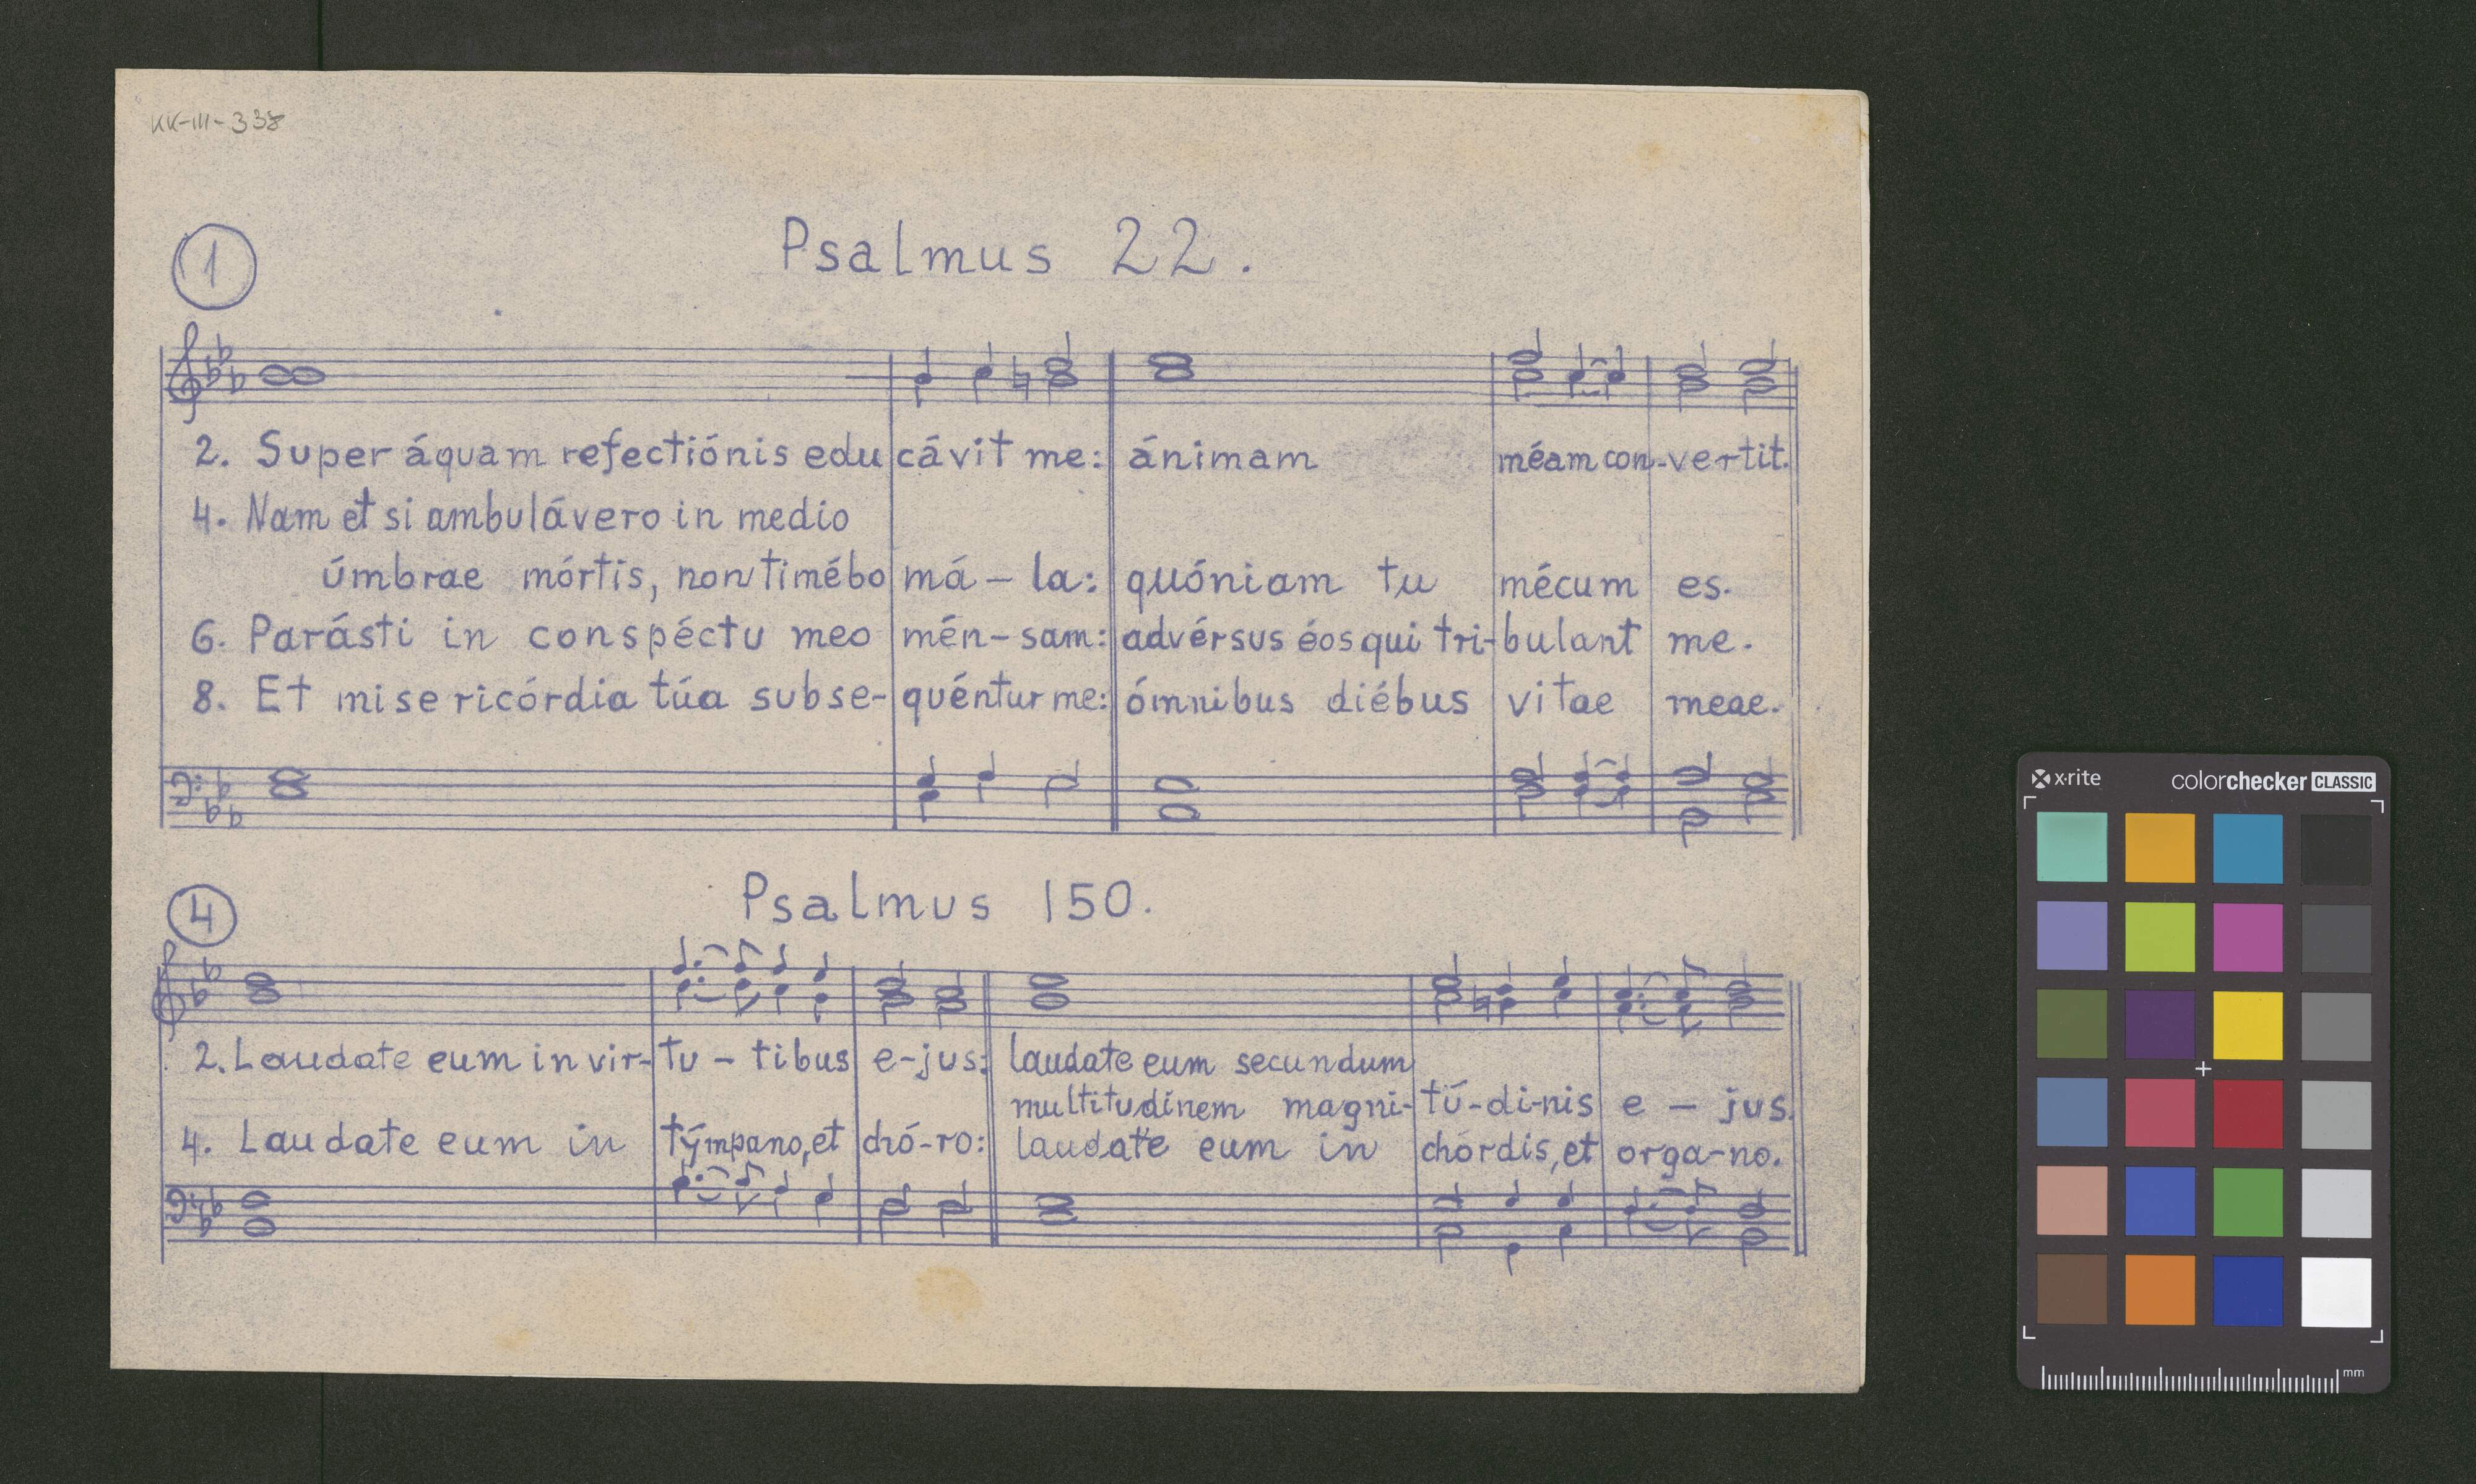 KK-III-338
1
Psalmus 22.
2. Super áquam refectiónis edu cávit me: ánimam méam con-vertit.
4. Nam et si ambulávero in medio
úmbrae mórtis, non timébo má-la: quóniam tu mécum es.
6. Parásti in conspéctu meo mén-sam: advérsus éos qui tri-bulant me.
8. Et misericórdia túa subse-quéntur me: ómnibus diébus vitae meae.
4
Psalmus 150.
2. Laudate eum in vir-tu-tibus e-jus: laudate eum secundum
multitudinem magni-tú-di-nis e-jus.
4. Laudate eum in týmpano, et chó-ro: laudate eum in chórdis, et orga-no.
x·rite colorchecker CLASSIC
mm